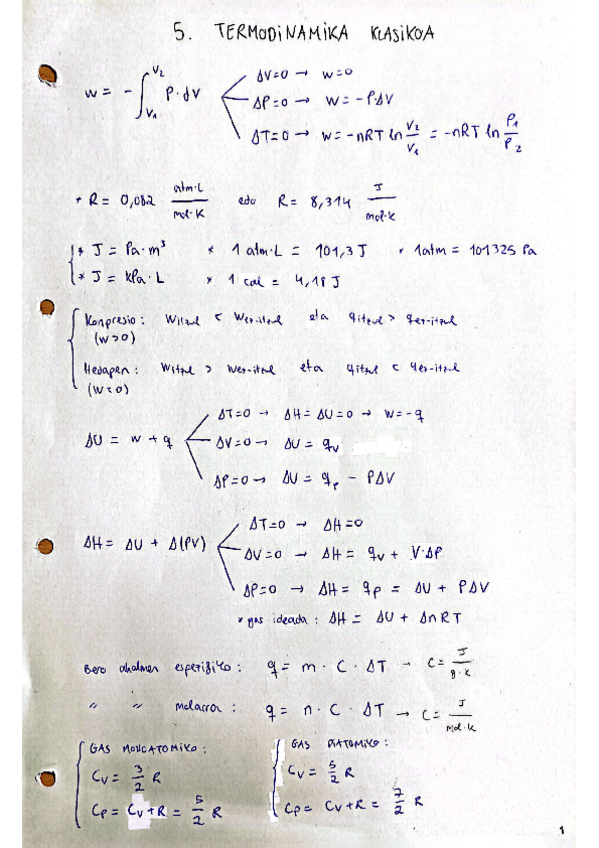 5. TERMODINAMIKA KLASIKOA
w = - ∫V1V2 P·dV
ΔV=0 → w=0
ΔP=0 → w = -P·ΔV
ΔT=0 → w = -nRT ln V2/V1 = -nRT ln P1/P2
* R = 0,082 atm·L/mol·K edo R = 8,314 J/mol·K
* J = Pa·m³ * 1 atm·L = 101,3 J * 1atm = 101325 Pa
* J = kPa·L * 1 cal = 4,18 J
Konpresio: Witzul < Wez-itzul eta qitzul > qez-itzul
(w>0)
Hedapen: Witzul > Wez-itzul eta qitzul < qez-itzul
(w<0)
ΔU = w + q
ΔT=0 → ΔH = ΔU = 0 → w = -q
ΔV=0 → ΔU = qv
ΔP=0 → ΔU = qp - PΔV
ΔH = ΔU + Δ(PV)
ΔT=0 → ΔH=0
ΔV=0 → ΔH = qv + V·ΔP
ΔP=0 → ΔH = qp = ΔU + PΔV
* gas ideala: ΔH = ΔU + ΔnRT
Bero ahalmen espezifiko: q = m · C · ΔT → C = J/g·K
" " molarra: q = n · C · ΔT → C = J/mol·K
GAS MONOATOMIKO:
Cv = 3/2 R
Cp = Cv+R = 5/2 R
GAS DIATOMIKO:
Cv = 5/2 R
Cp = Cv+R = 7/2 R
1